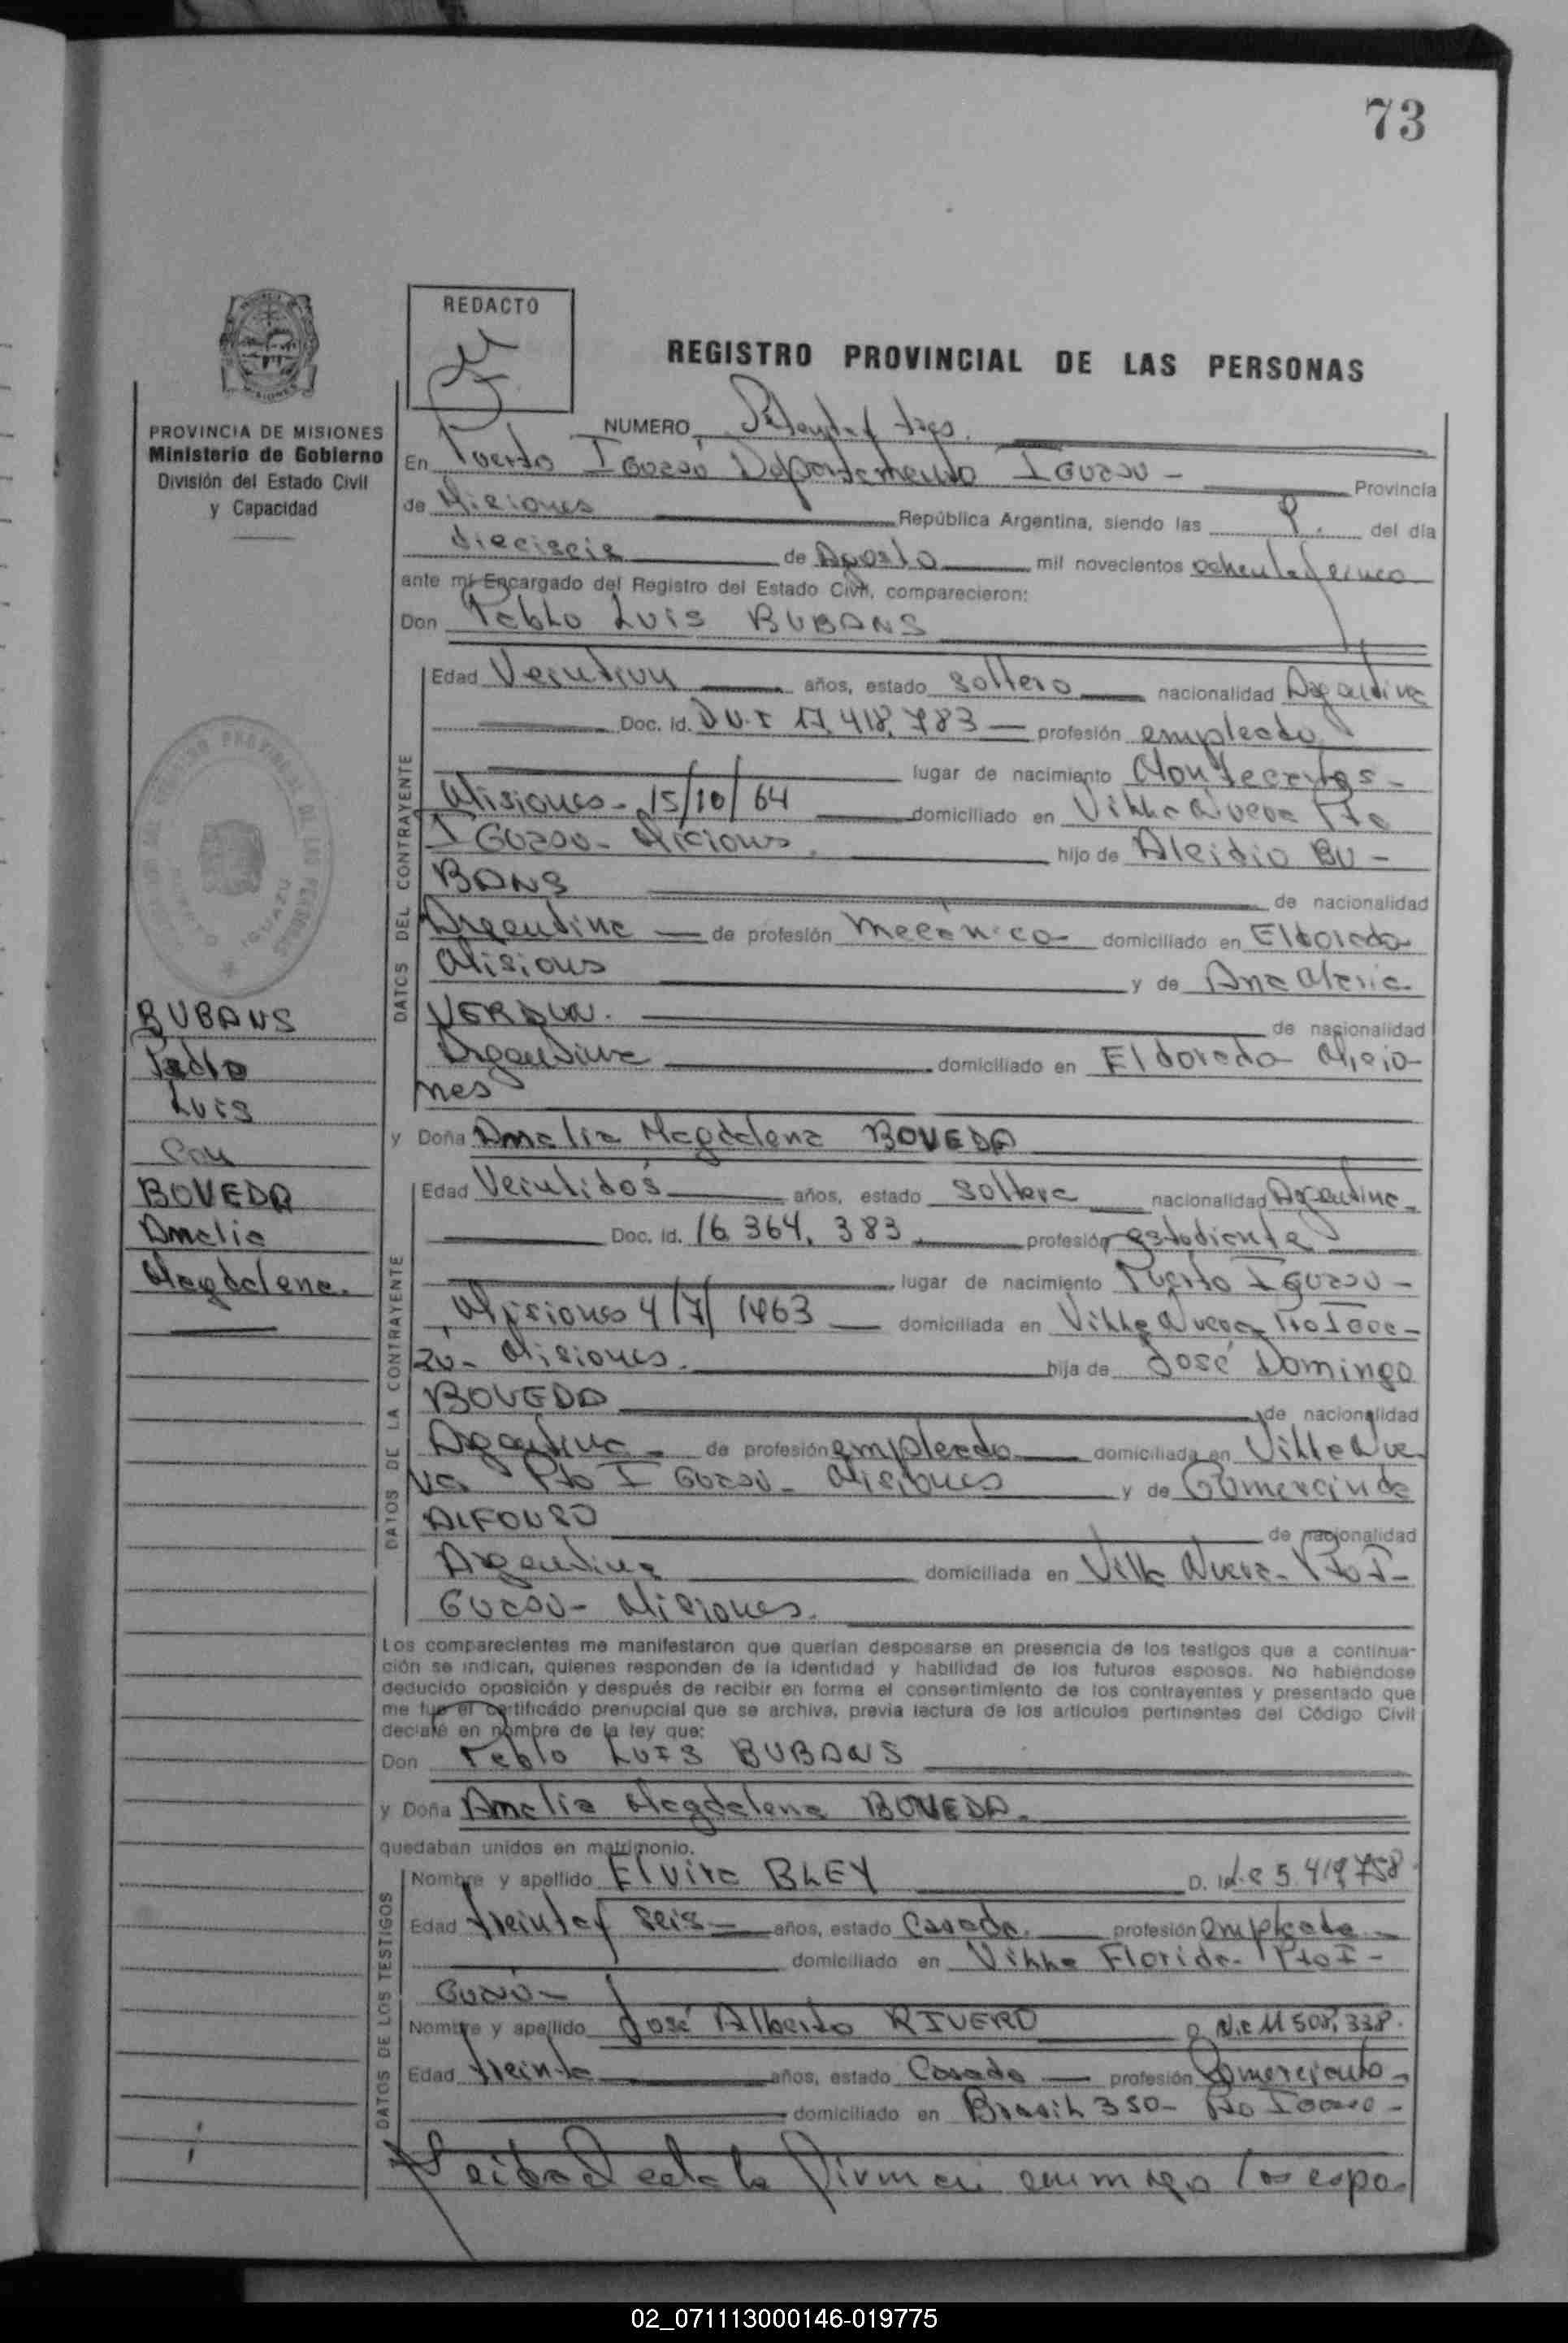 73
REDACTO
REGISTRO PROVINCIAL DE LAS PERSONAS
PROVINCIA DE MISIONES
Ministerio de Gobierno
División del Estado Civil
y Capacidad
BUBANS
Pablo
Luis
Con
BOVEDA
Amalia
Magdalena.
NUMERO Setenta y tres.
En Puerto Iguazú Departamento IGUAZU - Provincia
de Misiones República Argentina, siendo las 9. del día
dieciseis de Agosto mil novecientos ochenta y cinco
ante mí Encargado del Registro del Estado Civil, comparecieron:
Don Pablo Luis BUBANS
DATOS DEL CONTRAYENTE
Edad Veintiun años, estado soltero nacionalidad Argentina
Doc. Id. DNI 17.418.783 - profesión empleado
lugar de nacimiento Montecarlos -
Misiones - 15/10/64 domiciliado en Villa Nueva Pto
IGUAZU - Misiones. hijo de Alcidio BU -
BANS de nacionalidad
Argentina - de profesión mecánico - domiciliado en Eldorado
Misiones y de Ana Maria
VERDUN. de nacionalidad
Argentina domiciliado en Eldorado Misio-
nes
y Doña Amalia Magdalena BOVEDA
DATOS DE LA CONTRAYENTE
Edad Veintidós años, estado soltera nacionalidad Argentina -
Doc. Id. 16.364.383 profesión estudiante
lugar de nacimiento Puerto IGUAZU -
Misiones 4/7/1963 - domiciliada en Villa Nueva Pto Igua-
zu - Misiones. hija de José Domingo
BOVEDA de nacionalidad
Argentina - de profesión empleado domiciliada en Villa Nue-
va Pto IGUAZU - Misiones y de Gumercinda
ALFONZO de nacionalidad
Argentina domiciliada en Villa Nueva - Pto I-
GUAZU - Misiones.
Los comparecientes me manifestaron que querían desposarse en presencia de los testigos que a continua-
ción se indican, quienes responden de la identidad y habilidad de los futuros esposos. No habiéndose
deducido oposición y después de recibir en forma el consentimiento de los contrayentes y presentado que
me fue el certificado prenupcial que se archiva, previa lectura de los artículos pertinentes del Código Civil
declaré en nombre de la ley que:
Don Pablo LUIS BUBANS
y Doña Amalia Magdalena BOVEDA.
quedaban unidos en matrimonio.
DATOS DE LOS TESTIGOS
Nombre y apellido Elvira BLEY D. Id. 5.419.758
Edad treinta y seis - años, estado Casada. profesión empleada -
domiciliado en Villa Florida - Pto I -
GUAZU -
Nombre y apellido José Alberto RIVERO 11.508.338.
Edad treinta años, estado Casado - profesión Comerciante -
domiciliado en Brasil 350 - Pto Iguazu -
Leida el acta la firman conmigo los espo-
02_071113000146-019775